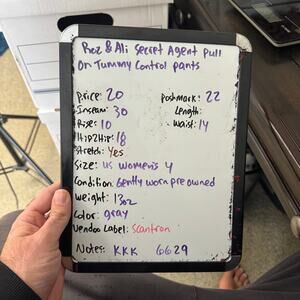 Bez & Ali Secret Agent Pull
On Tummy Control pants
Price: 20
Poshmark: 22
Inseam: 30
Length:
Rise: 10
Waist: 14
Hip2Hip: 18
Stretch: Yes
Size: US Women's 4
Condition: Gently worn pre owned
Weight: 13oz
Color: gray
Vendoo Label: Scantron
Notes: KKK 6629